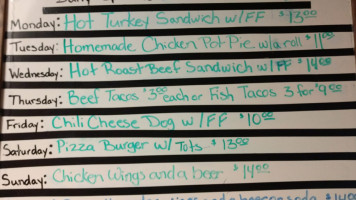 Monday: Hot Turkey Sandwich w/FF $13.00
Tuesday: Homemade Chicken Pot Pie w/a roll $11.00
Wednesday: Hot Roast Beef Sandwich w/FF $14.00
Thursday: Beef Tacos $3.00 each or Fish Tacos 3 for $9.00
Friday: Chili Cheese Dog w/FF $10.00
Saturday: Pizza Burger w/ Tots $13.00
Sunday: Chicken Wings and a beer $14.00